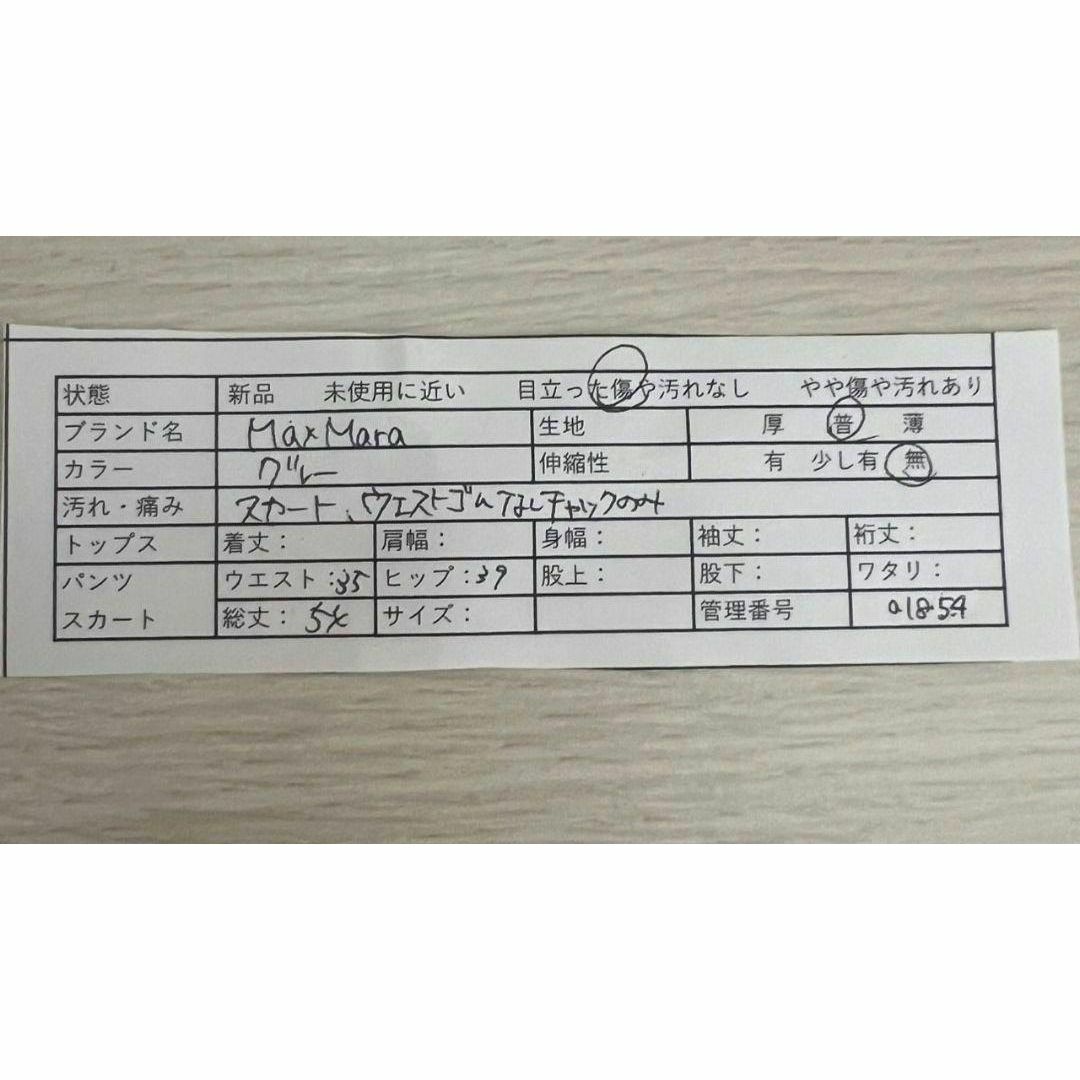 状態 新品 未使用に近い 目立った傷や汚れなし やや傷や汚れあり
ブランド名 MaxMara 生地 厚 普 薄
カラー グレー 伸縮性 有 少し有 無
汚れ・痛み スカート、ウエストゴムなしチャックのみ
トップス 着丈： 肩幅： 身幅： 袖丈： 裄丈：
パンツ ウエスト：35 ヒップ：39 股上： 股下： ワタリ：
スカート 総丈： サイズ： 管理番号 a1854